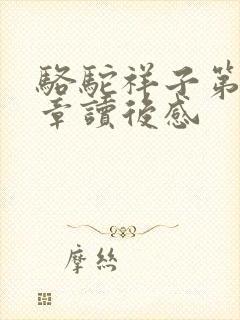 駱駝祥子第
章讀後感
摩絲